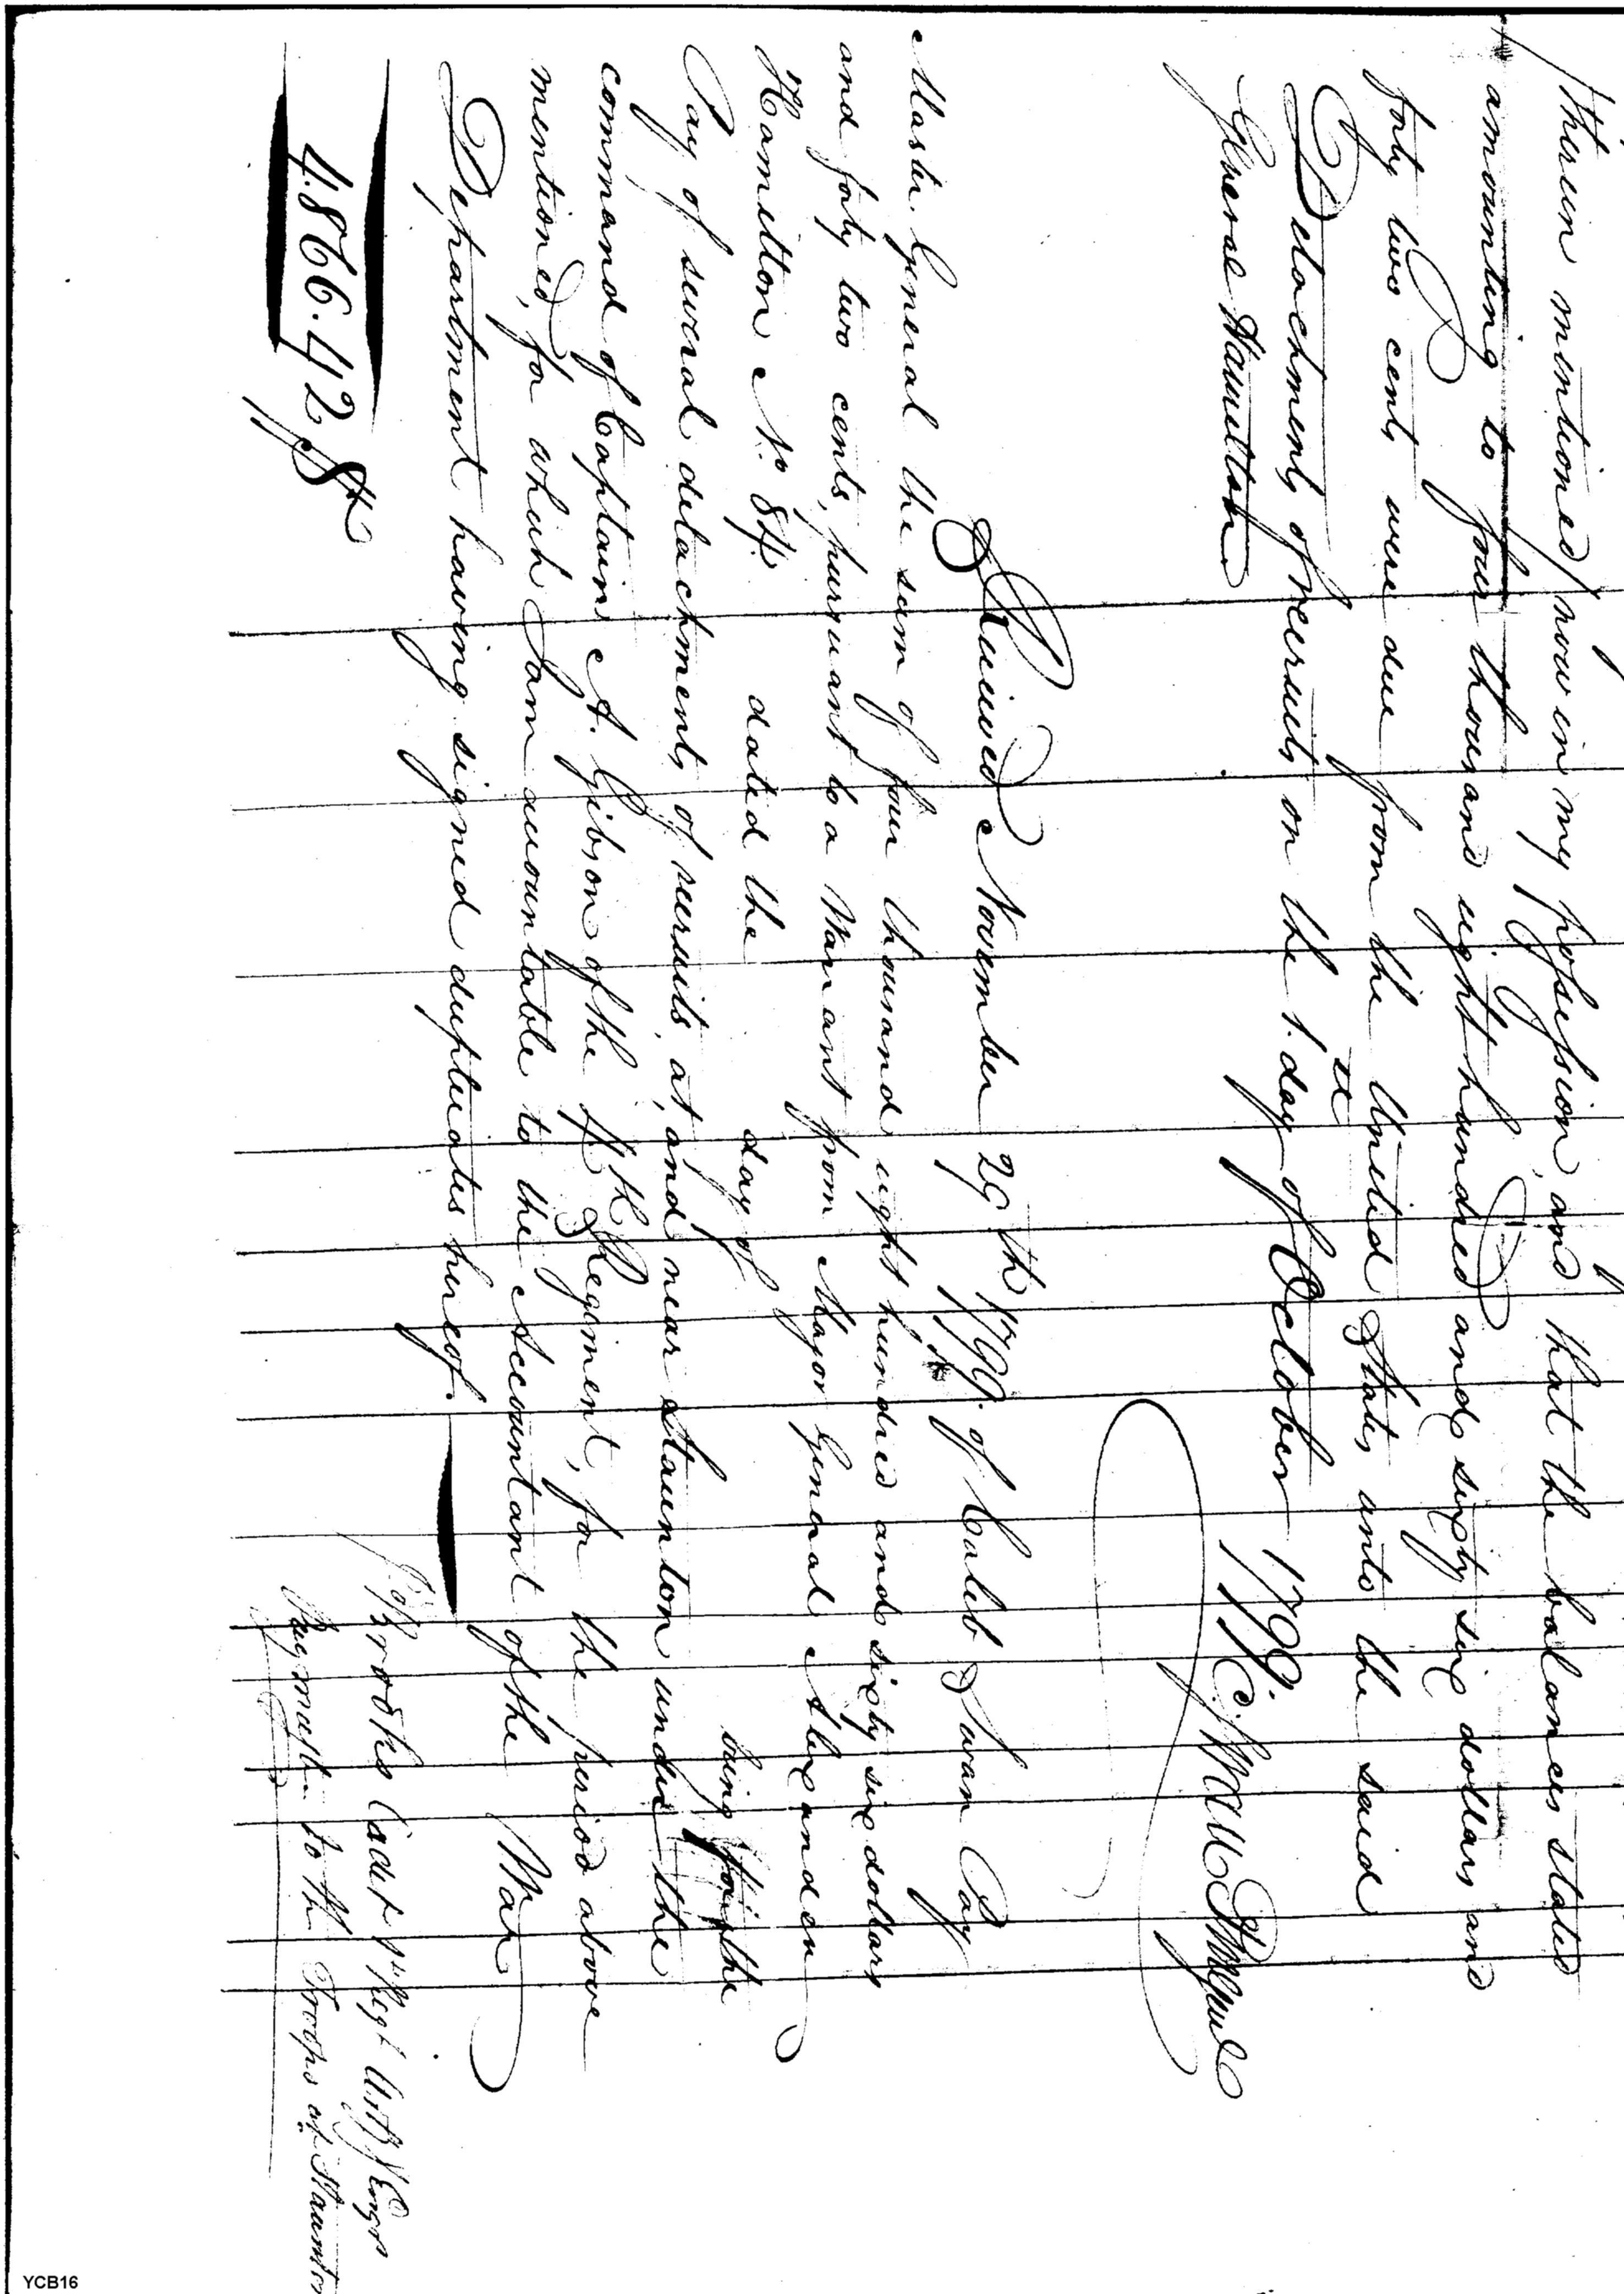 therein mentioned, now in my possession, and that the balances stated
amounting to four thousand eight hundred and sixty six dollars and
forty two cents were due from the United States unto the said
Detachments of recruits on the 1st day of October 1799.
General Hamilton
C. Swan P.M. Genl
Received November 29th 1799. of Caleb Swan Pay
Master General the sum of four thousand eight hundred and sixty six dollars
and forty two cents, pursuant to a Warrant from Major General Alexander
Hamilton No. 84. dated the day of being for the
Pay of several detachments of recruits, at, and near Staunton under the
command of Captain A. Gibson of the 4th Regiment, for the period above
mentioned, for which I am accountable to the Accountant of the War
Department having signed duplicates hereof.
4.866.42
Brooks Cadet 1st Regt Arty & Engrs
Paymaster to the Troops at Staunton
YCB16